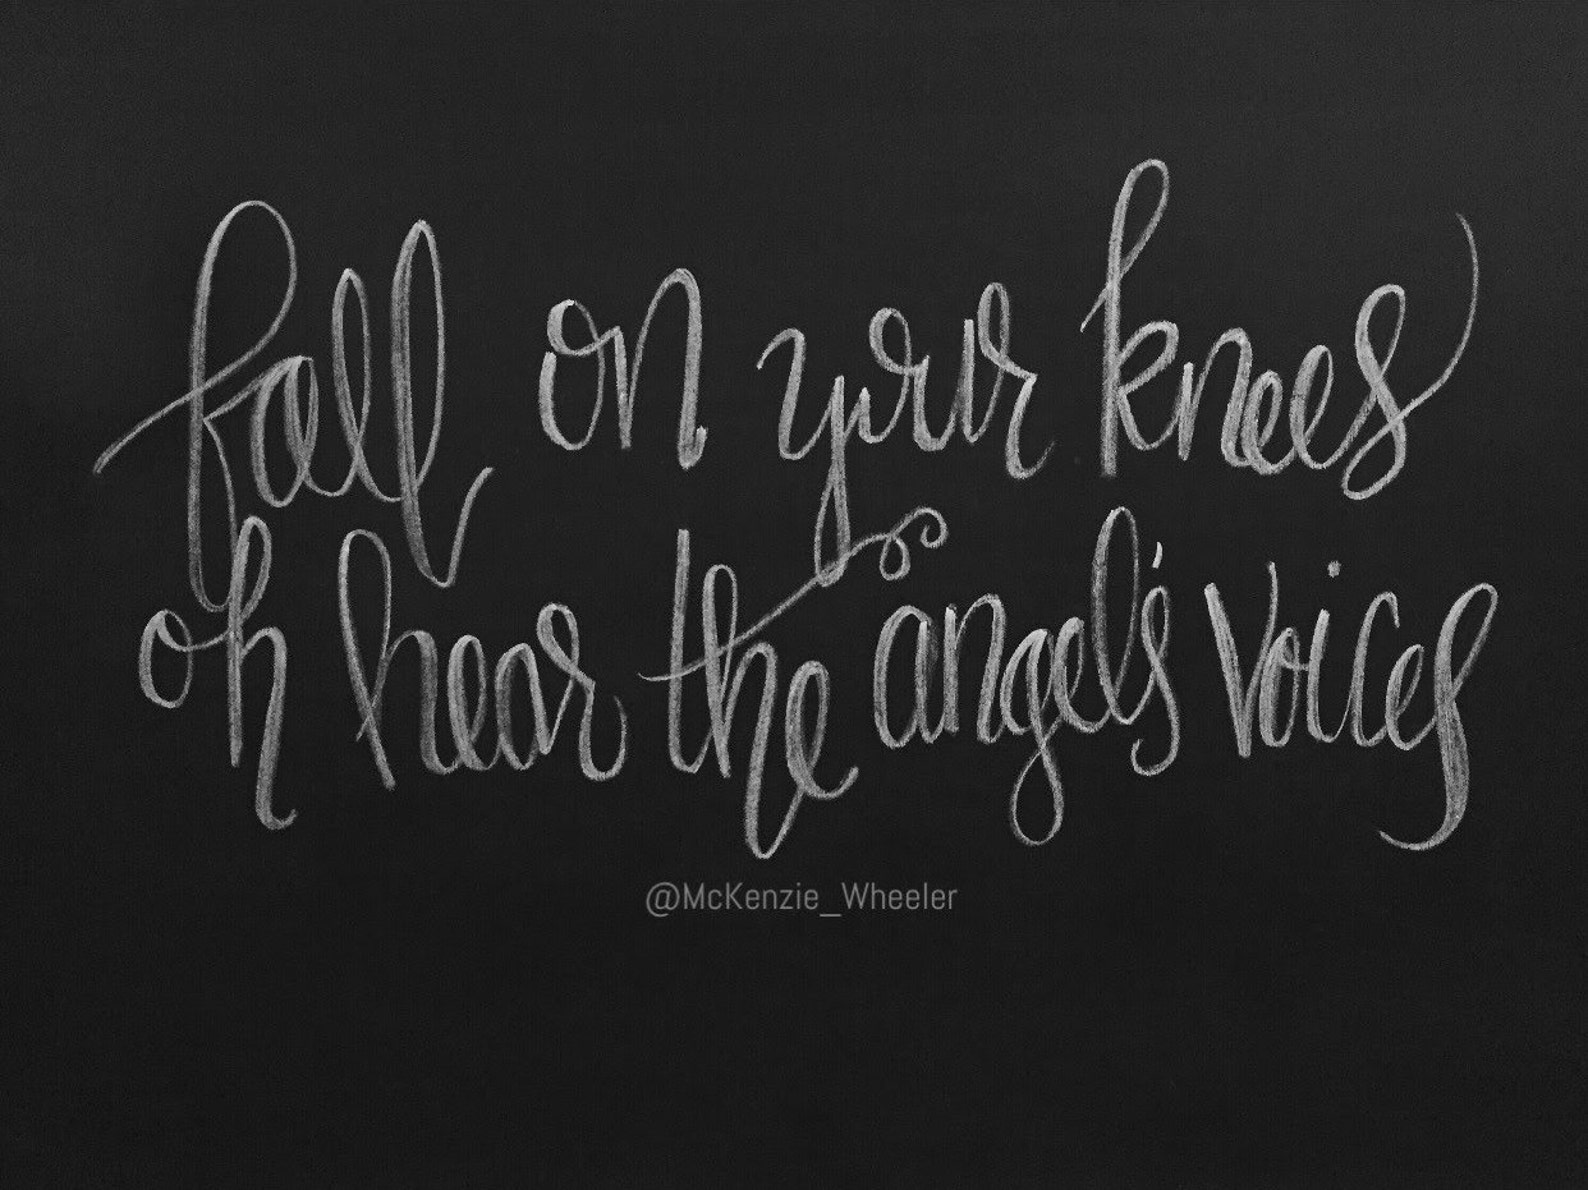 fall on your knees
oh hear the angel's voices
@McKenzie_Wheeler